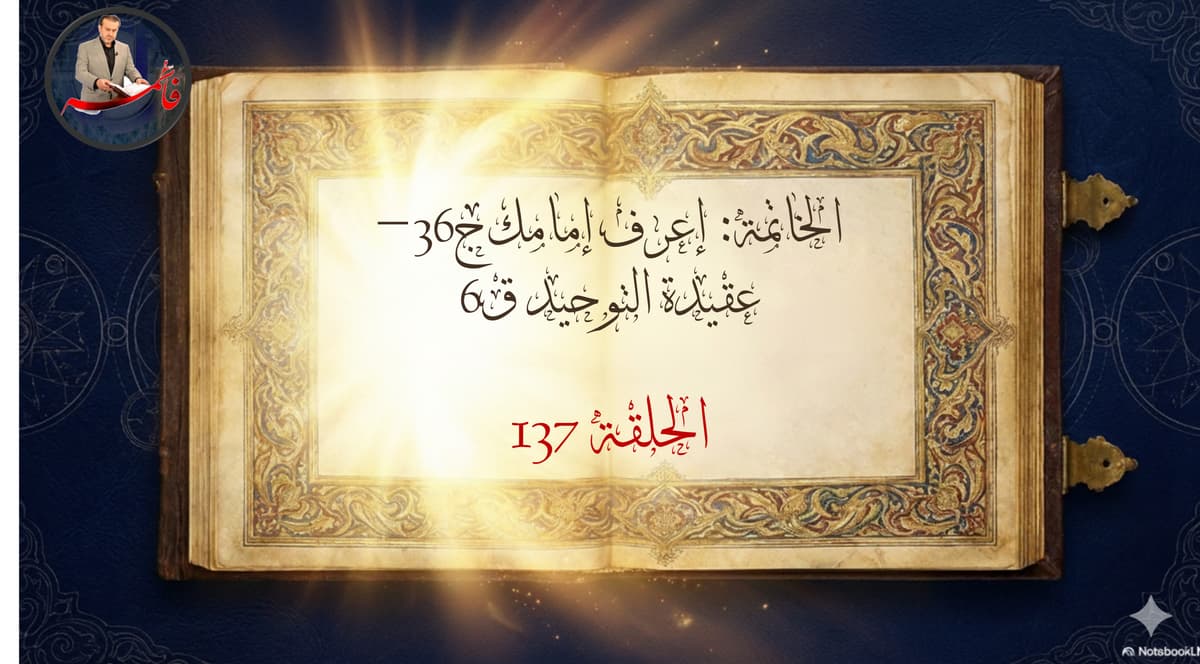 فاطمه
الخاتمة: إعرف إمامك ج36 –
عقيدة التوحيد ق6
الحلقة 137
NotsbookLM